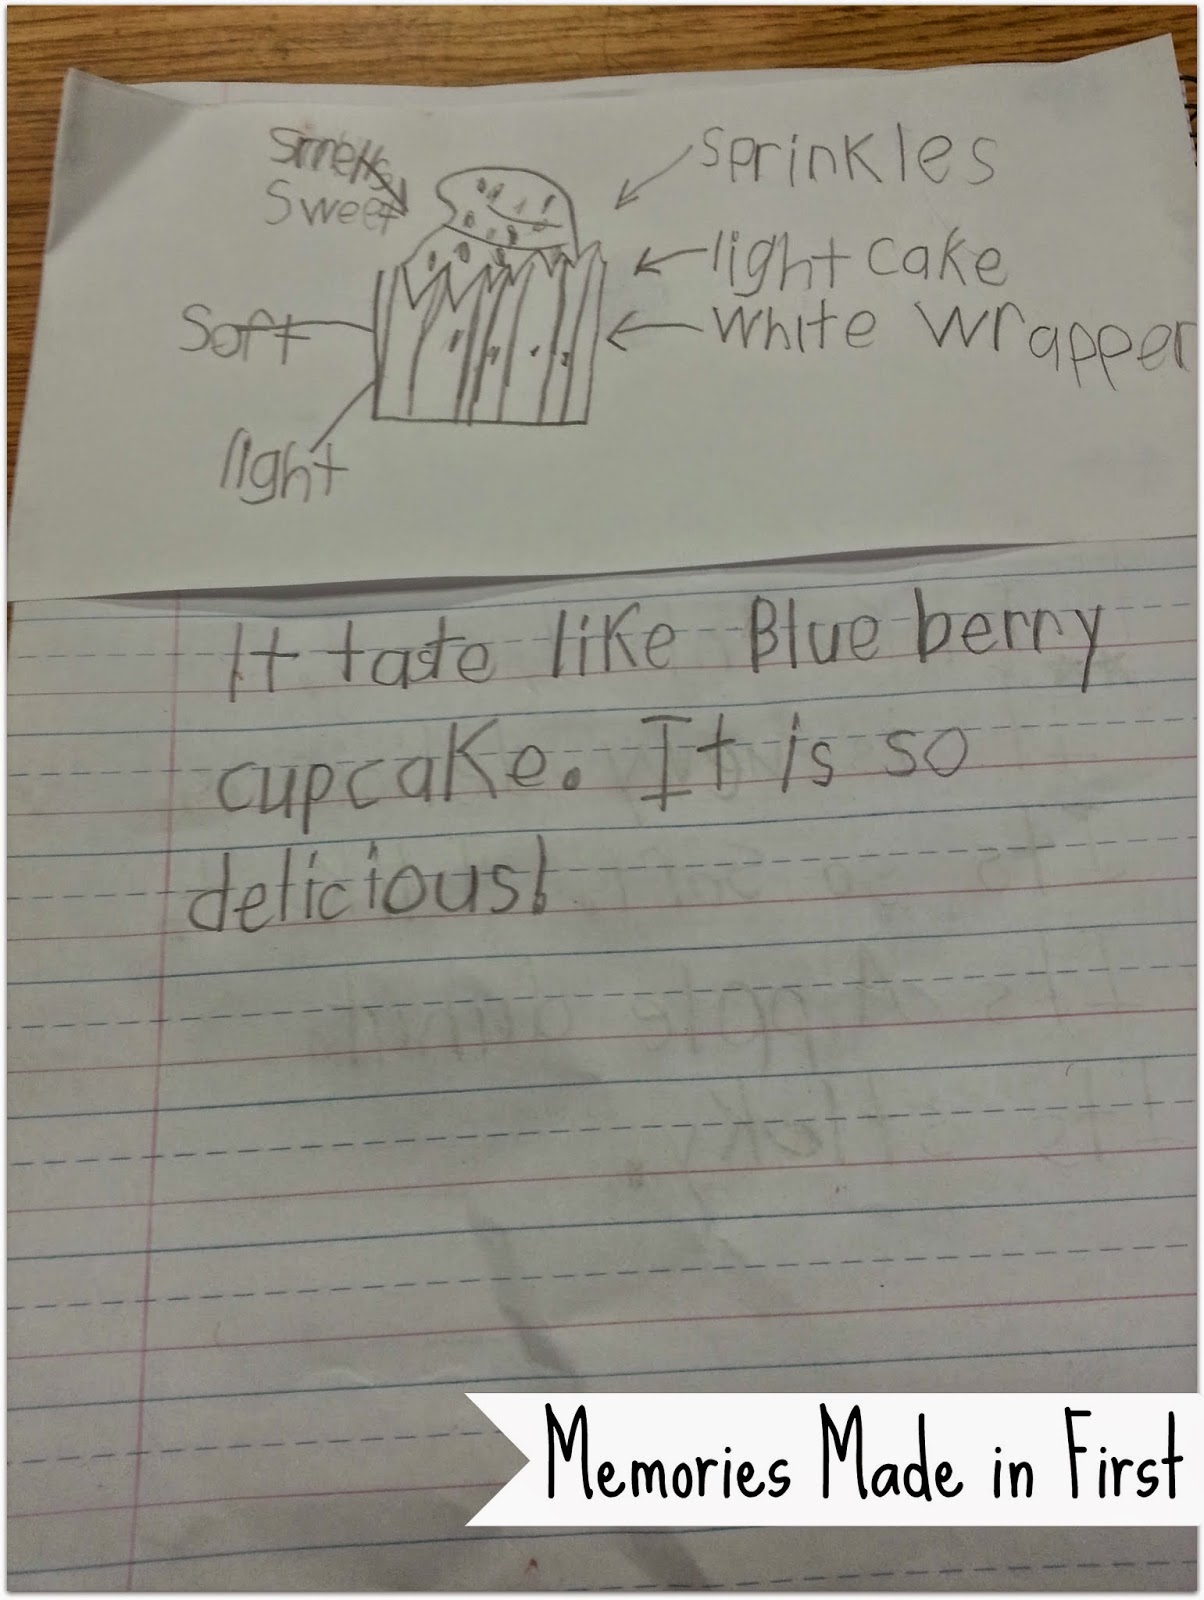 Smells
Sweet
Sprinkles
light cake
white wrapper
Soft
light
It taste like Blue berry
cupcake. It is so
delicious!
Memories Made in First